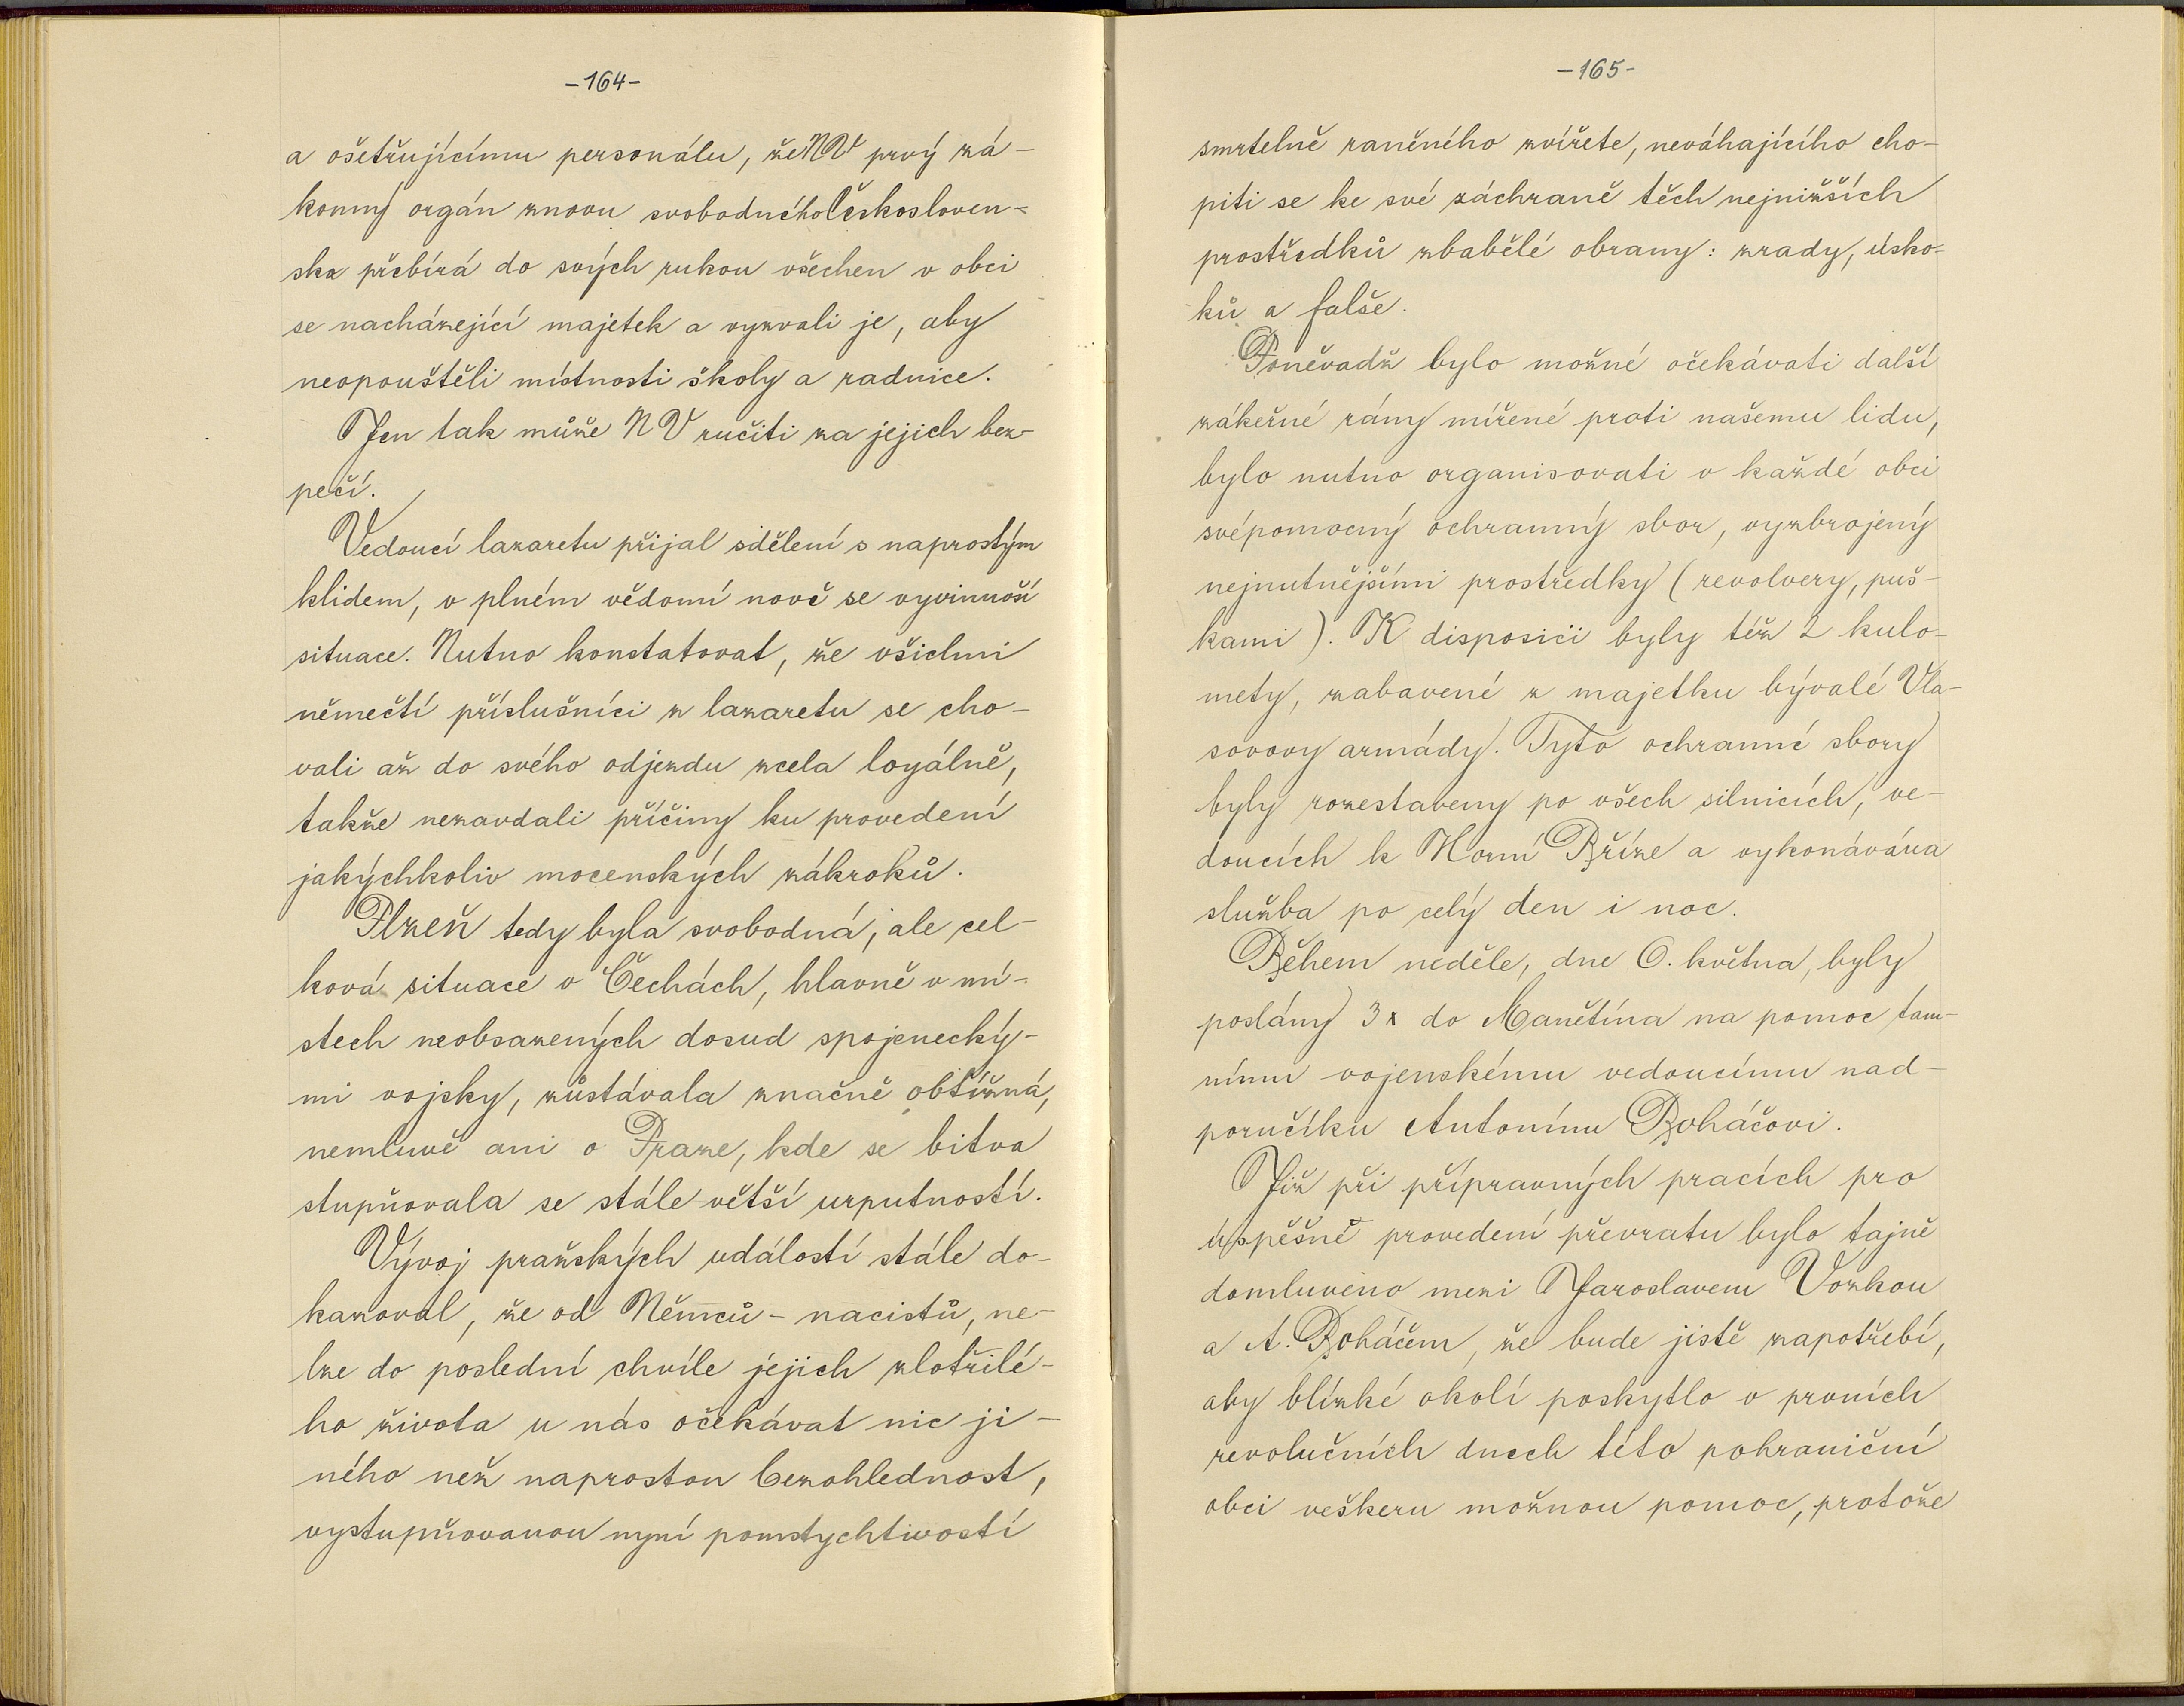 -164-
a ošetřujícímu personálu, že NV prvý zá-
konný orgán znovu svobodného Českosloven-
ska přebírá do svých rukou všechen v obci
se nacházející majetek a vyzvali je, aby
neopouštěli místnosti školy a radnice.
Jen tak může NV ručiti za jejich bez-
pečí.
Vedoucí lazaretu přijal sdělení s naprostým
klidem, v plném vědomí nově se vyvinuvší
situace. Nutno konstatovat, že všichni
němečtí příslušníci z lazaretu se cho-
vali až do svého odjezdu zcela loyálně,
takže nezavdali příčiny ku provedení
jakýchkoliv mocenských zákroků.
Plzeň tedy byla svobodná, ale cel-
ková situace v Čechách, hlavně v mí-
stech neobsazených dosud spojenecký-
mi vojsky, zůstávala značně obtížná,
nemluvě ani o Praze, kde se bitva
stupňovala se stále větší urputností.
Vývoj pražských událostí stále do-
kazoval, že od Němců - nacistů, ne-
lze do poslední chvíle jejich zlotřilé-
ho života u nás očekávat nic ji-
ného než naprostou bezohlednost,
vystupňovanou nyní pomstychtivostí
-165-
smrtelně raněného zvířete, neváhajícího cho-
piti se ke své záchraně těch nejnižších
prostředků zbabělé obrany: zrady, úsko-
ků a falše.
Poněvadž bylo možné očekávati další
zákeřné rány mířené proti našemu lidu,
bylo nutno organisovati v každé obci
svépomocný ochranný sbor, vyzbrojený
nejnutnějšími prostředky (revolvery, puš-
kami). K disposici byly též 2 kulo-
mety, zabavené z majetku bývalé Vla-
sovovy armády. Tyto ochranné sbory
byly rozestaveny po všech silnicích, ve-
doucích k Horní Bříze a vykonávána
služba po celý den i noc.
Během neděle, dne 6. května, byly
poslány 3x do Manětína na pomoc tam-
nímu vojenskému vedoucímu nad-
poručíku Antonínu Boháčovi.
Již při přípravných pracích pro
úspěšné provedení převratu bylo tajně
domluveno mezi Jaroslavem Vozkou
a A. Boháčem, že bude jistě zapotřebí,
aby blízké okolí poskytlo v prvních
revolučních dnech této pohraniční
obci veškeru možnou pomoc, protože